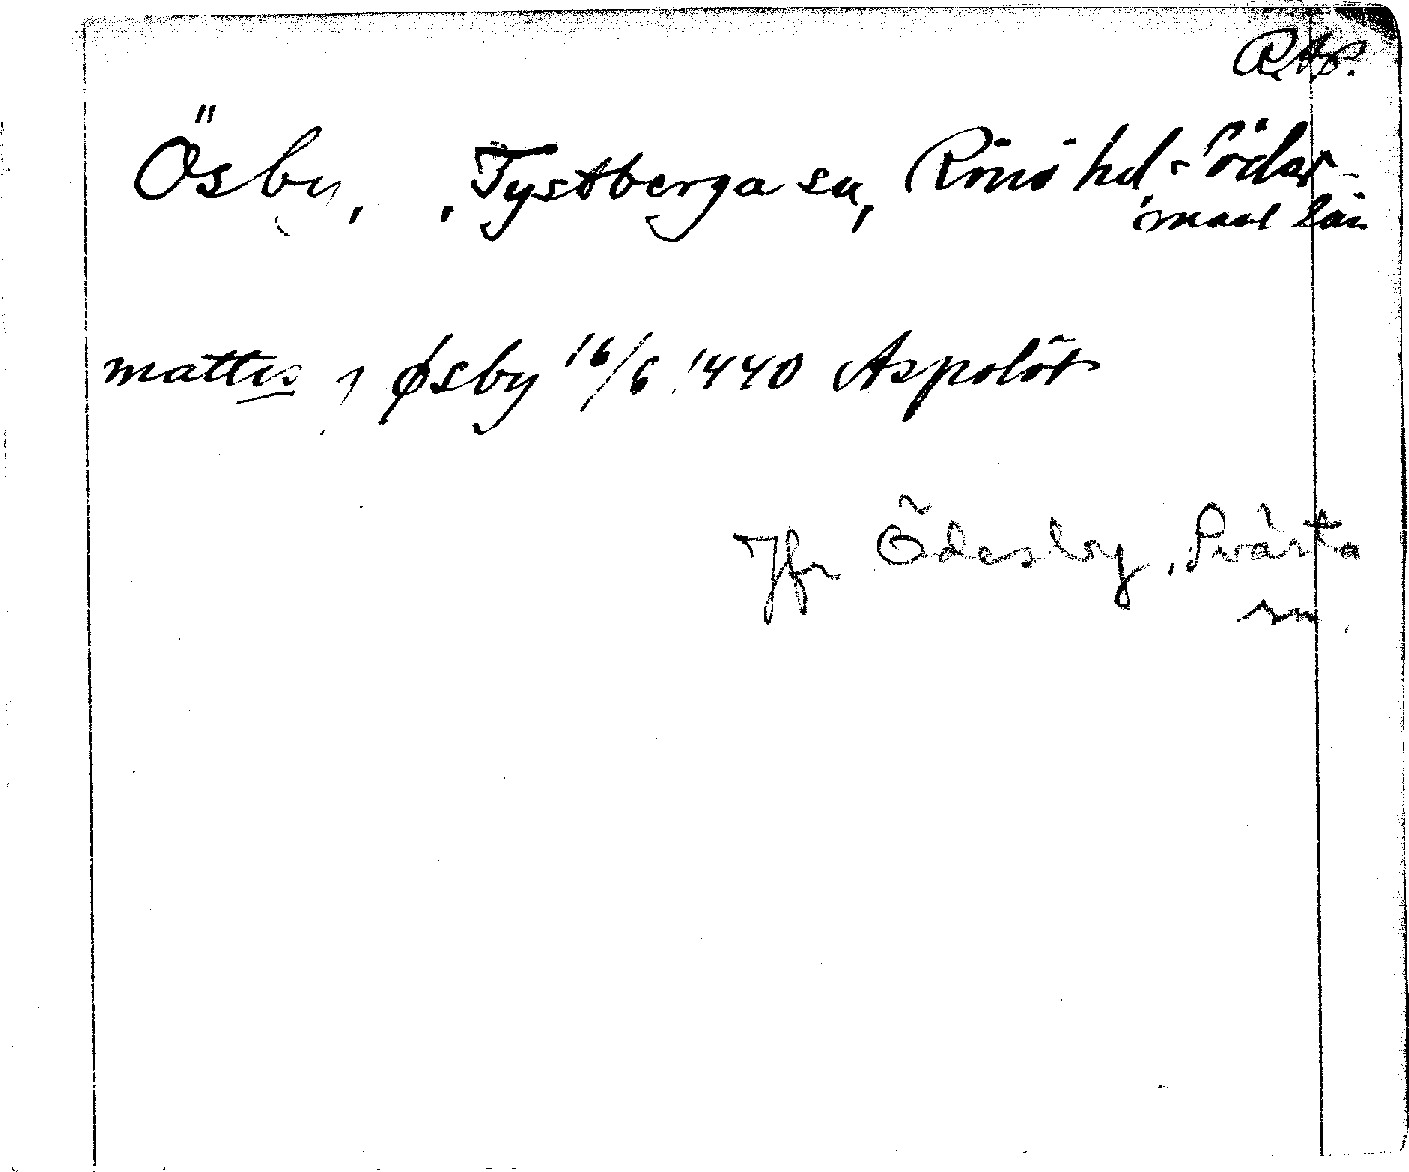 RAp.
Ösby, Tystberga sn, Rönö hd Södermanl län
mattis j Øsby 16/6 1440 Aspolöt
Jfr Ödesby, Svärta
sn.